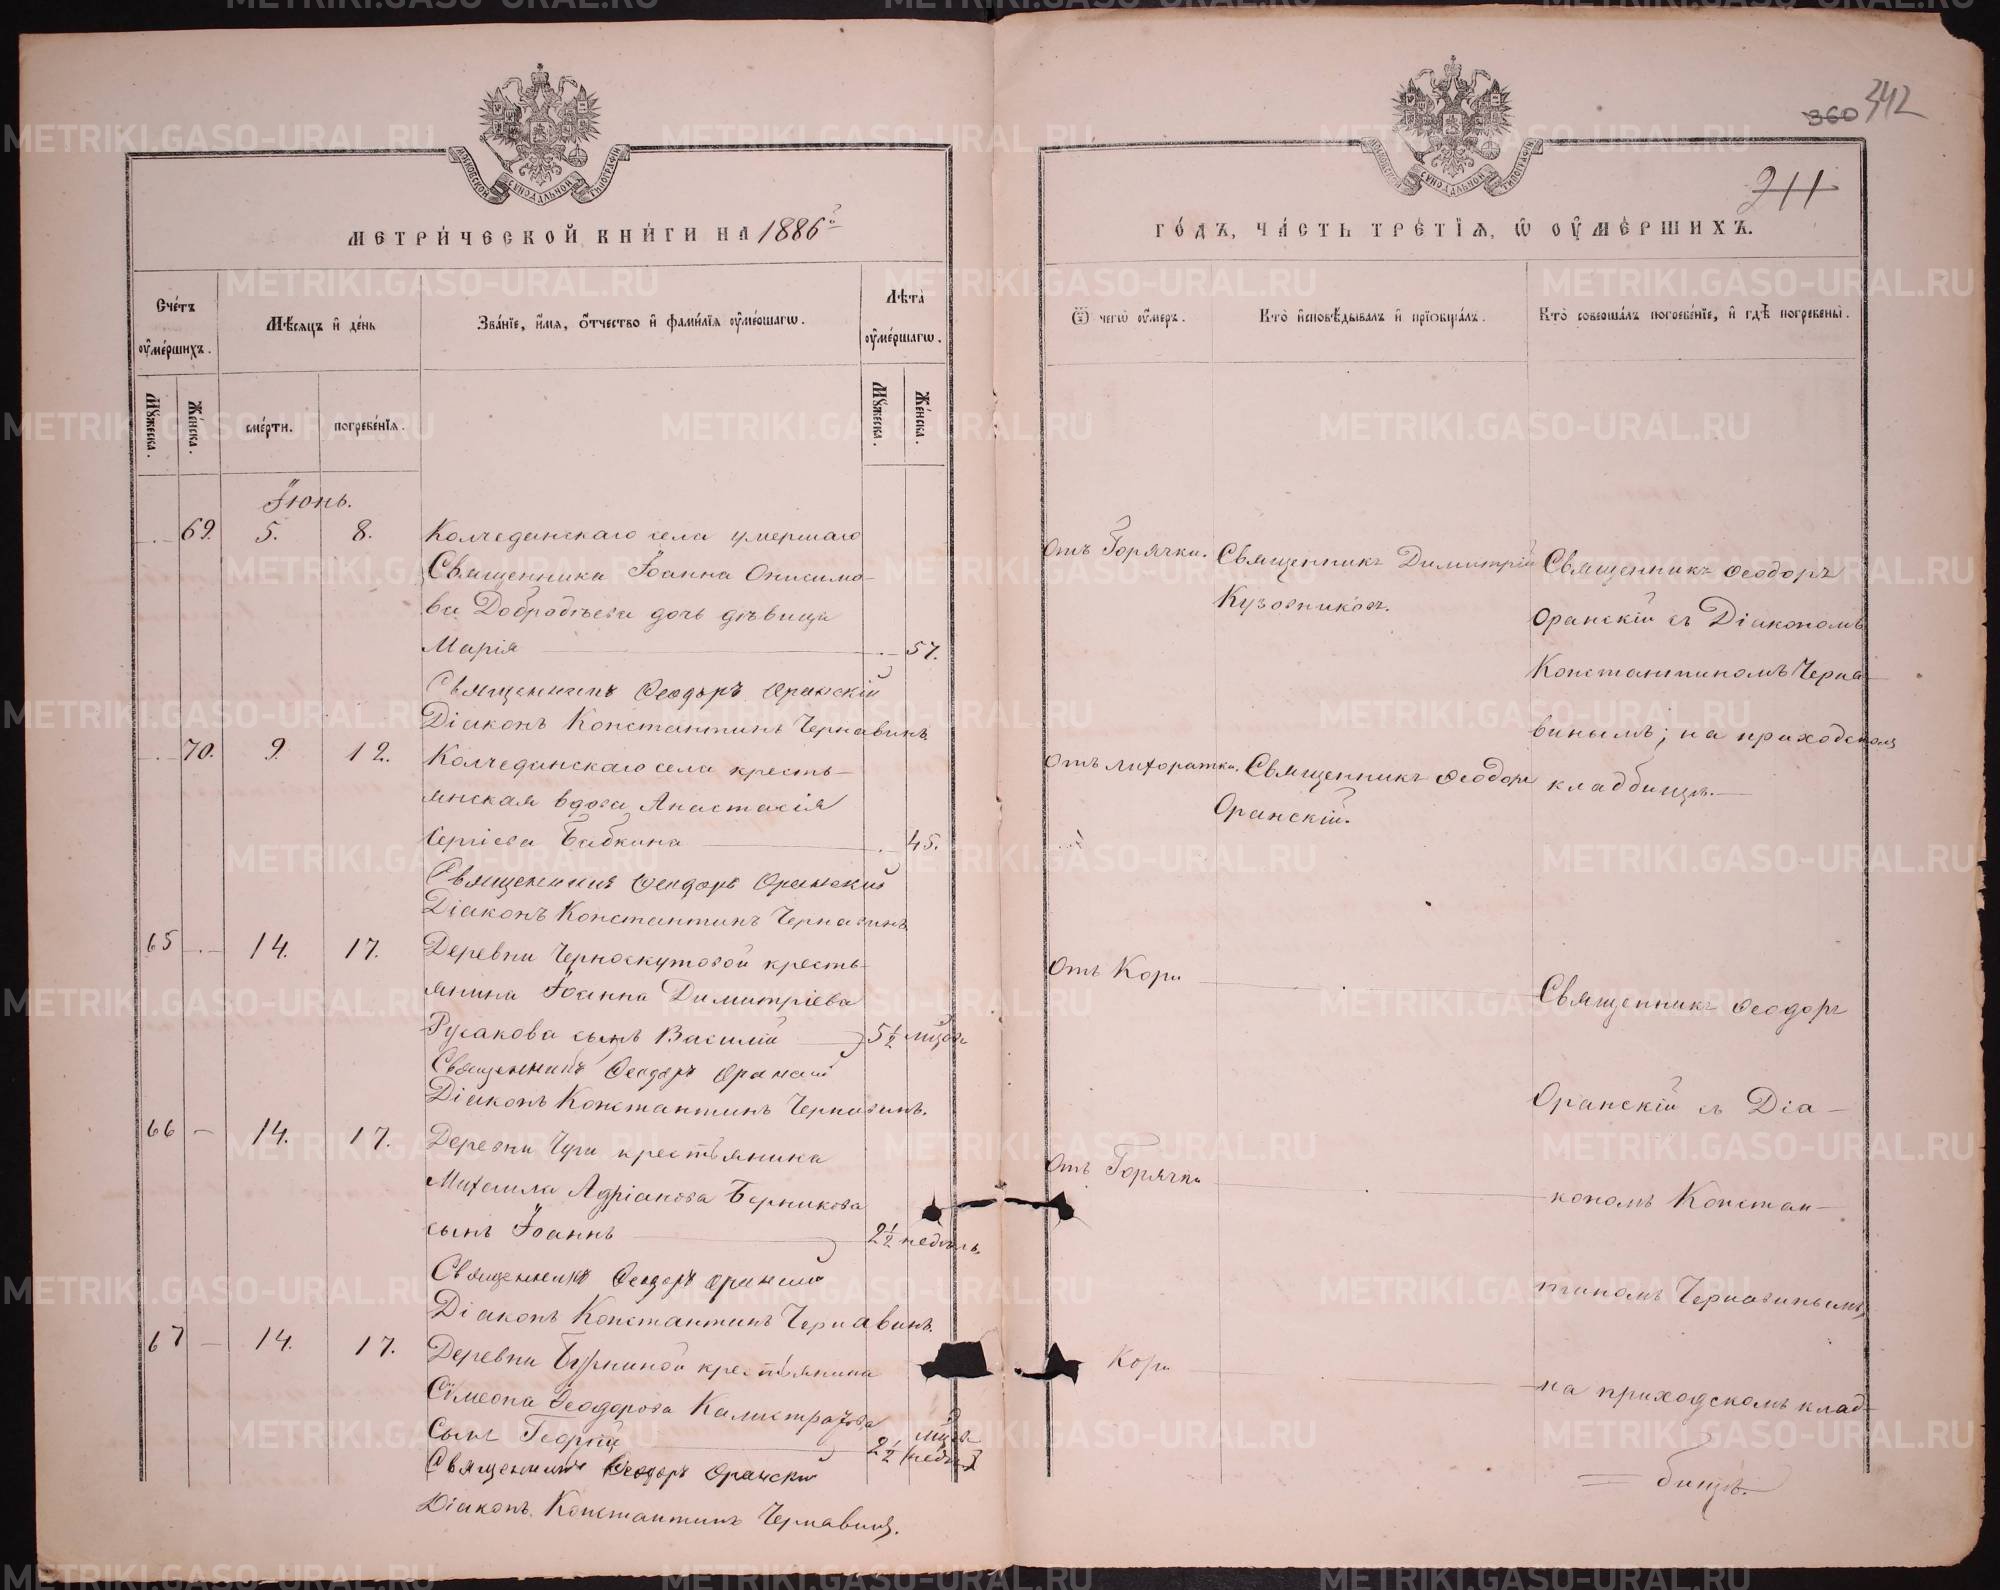 360 342
211
МЕТРИ́ЧЕСКОЙ КНИ́ГИ НА 1886й
ГО́ДЪ, ЧА́СТЬ ТРЕ́ТІѦ, Ѡ ОУМЕ́РШИХЪ.
Сче́тъ оумершихъ.
Мѣсяцъ и де́нь
Зва́нїе, и́мя, о́тчество и фами́лїя оуме́ршагѡ.
Лѣта̀ оуме́ршагѡ.
Ѿ чегѡ̀ оу́меръ.
Кто̀ исповѣ́дывалъ и прїобща́лъ.
Кто̀ соверша́лъ погребе́нїе, и гдѣ̀ погребены̀.
Му́жеска.
Же́нска.
сме́рти.
погребе́нїя.
Му́жеска.
Же́нска.
Іюнь.
69. 5. 8. Колчеданскаго села умершаго
Священника Іоанна Онисимо-
ва Добродѣева дочь дѣвица
Марія 57.
Отъ Горячки.
Священникъ Димитрій
Кузовниковъ.
Священникъ Ѳеодоръ
Оранскій съ Діакономъ
Константиномъ Черна-
винымъ; на приходскомъ
кладбищѣ.
Священникъ Ѳеодоръ Оранскій
Діаконъ Константинъ Чернавинъ.
70. 9. 12. Колчеданскаго села кресть-
янская вдова Анастасія
Сергіева Бабкина 45.
Отъ лихоратки.
Священникъ Ѳеодоръ
Оранскій.
Священникъ Ѳеодоръ Оранскій
Діаконъ Константинъ Чернавинъ.
65 14. 17. Деревни Черноскутовой кресть-
янина Іоанна Димитріева
Русакова сынъ Василій 5½ мѣсяц.
Отъ Кори
Священникъ Ѳеодоръ
Оранскій съ Діа-
кономъ Констан-
тиномъ Чернавинымъ,
на приходскомъ клад-
бищѣ.
Священникъ Ѳеодоръ Оранскій
Діаконъ Константинъ Чернавинъ.
66 14. 17. Деревни Чуги крестьянина
Михаила Адріанова Берникова
сынъ Іоаннъ 2½ недѣль.
Отъ Горячки
Священникъ Ѳеодоръ Оранскій
Діаконъ Константинъ Чернавинъ.
67 14. 17. Деревни Бурниной крестьянина
Сімеона Ѳеодорова Калистратова
Сынъ Георгій 2½
Кори
Священникъ Ѳеодоръ Оранскій
Діаконъ Константинъ Чернавинъ.
METRIKI.GASO-URAL.RU